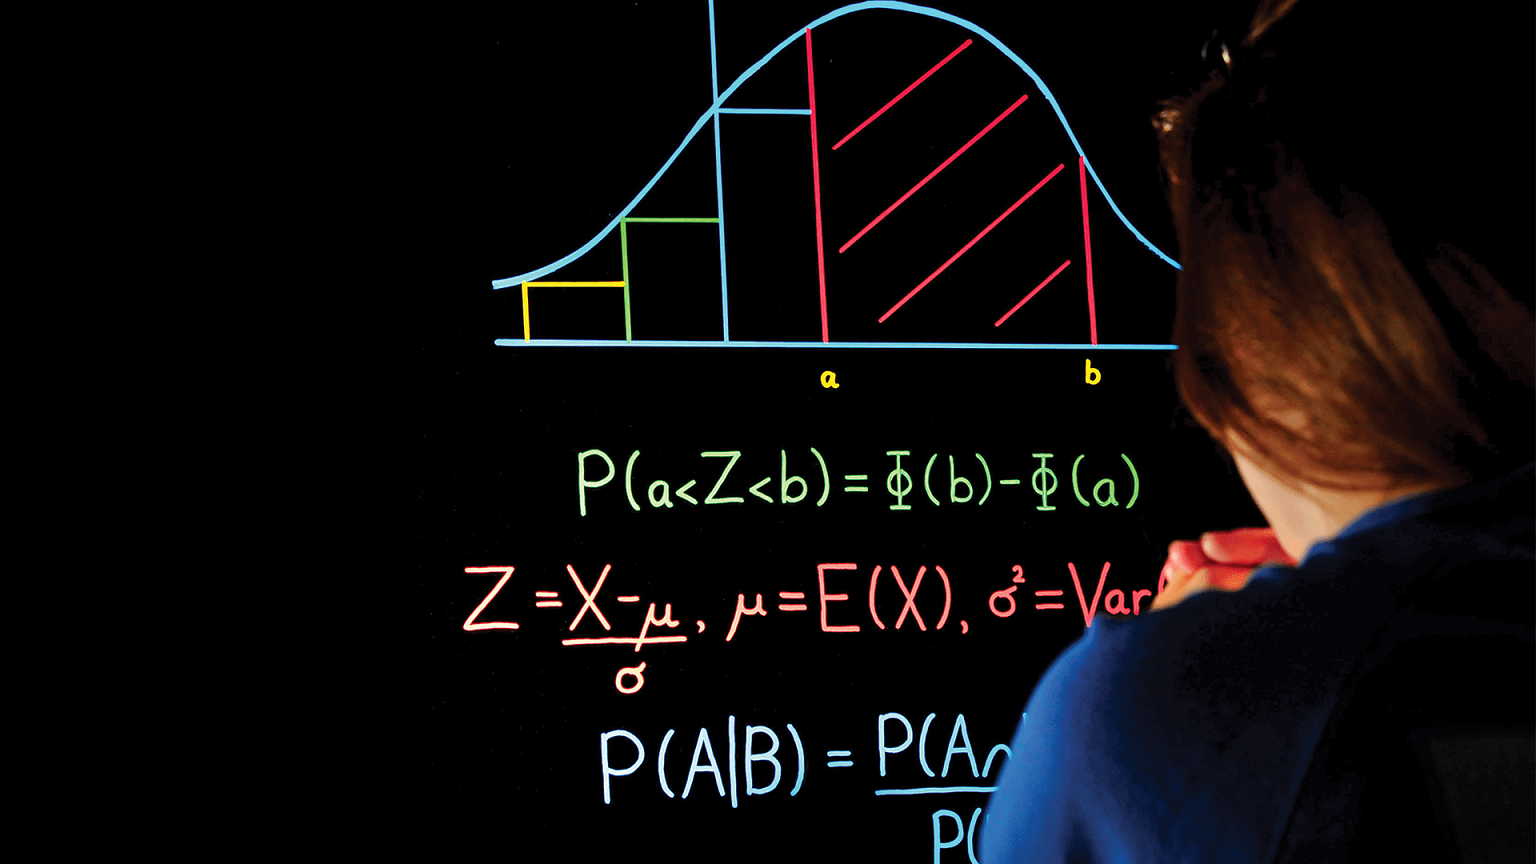 a b
P(a<Z<b) = Φ(b) - Φ(a)
Z = X-μ/σ, μ = E(X), σ² = Var(
P(A|B) = P(A∩/P(